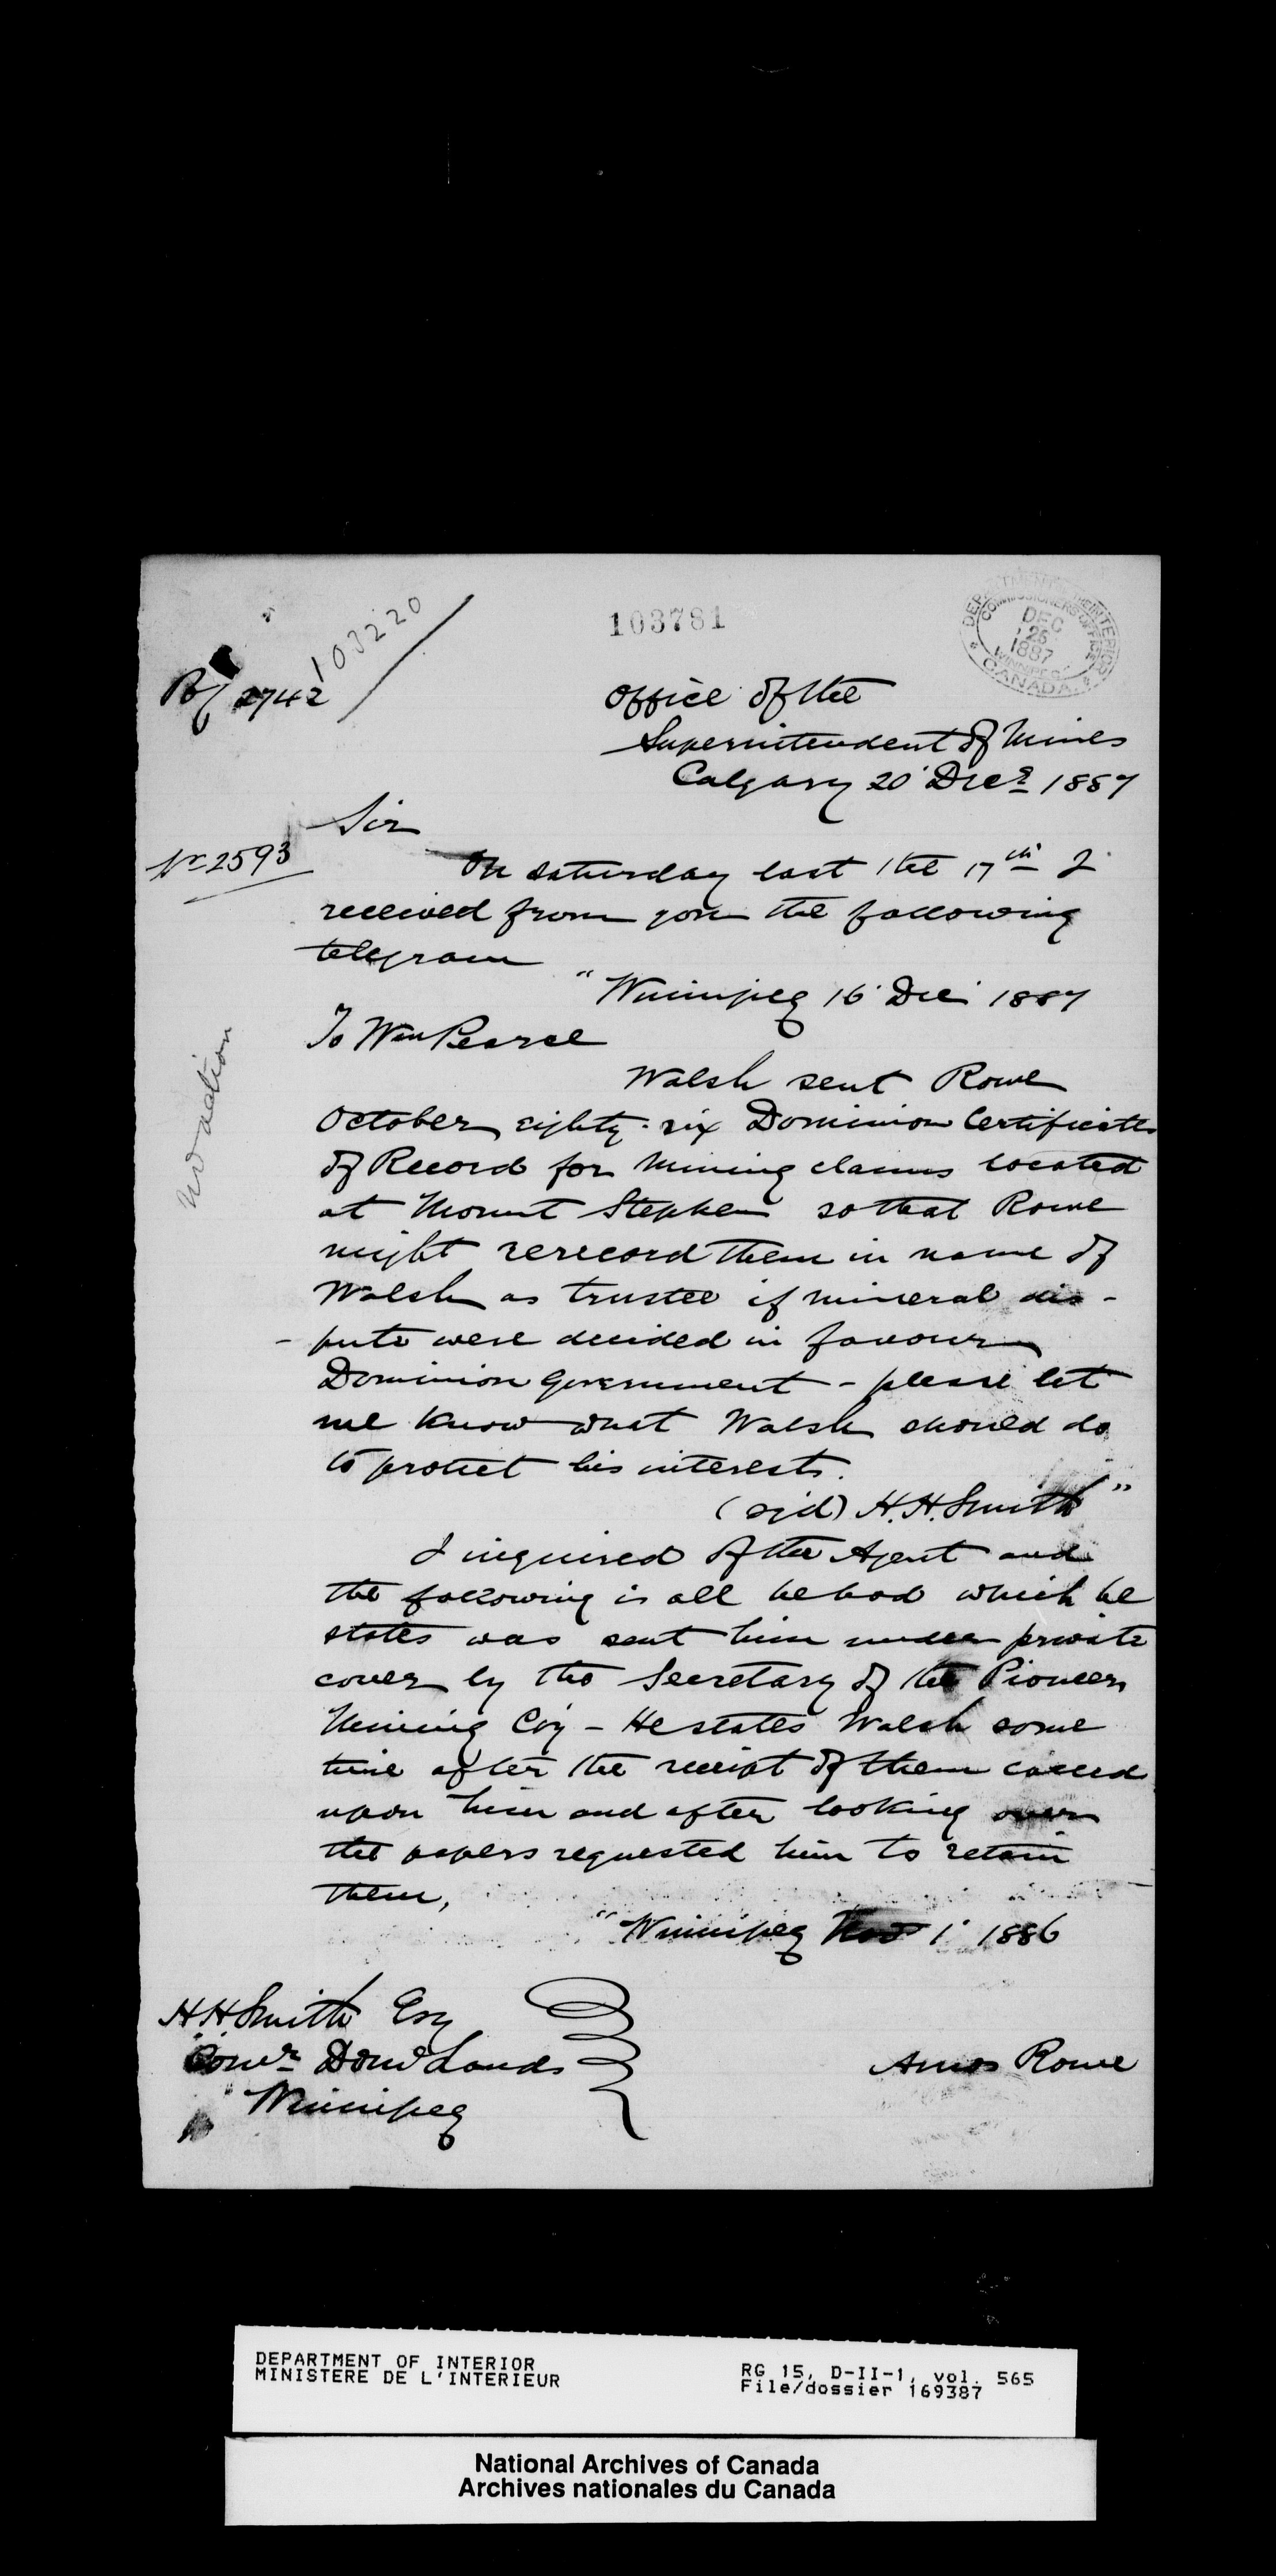 103781
DEPARTMENT OF THE INTERIOR
COMMISSIONERS OFFICE
DEC
25
1887
WINNIPEG
CANADA
103220
2742
Office of the
Superintendent of Mines
Calgary 20 Decr 1887
Sir
No 2593
On Saturday last the 17th I
received from you the following
telegram
"Winnipeg 16 Dec 1887
To Wm Pearce
Walsh sent Rowe
October eighty-six Dominion Certificates
of Record for Mining claims located
at Mount Stephen so that Rowe
might rerecord them in name of
Walsh as trustee if mineral dis-
-pute were decided in favour
Dominion Government - please let
me know what Walsh should do
to protect his interests.
(sgd) H.H. Smith"
No action
I inquired of the Agent and
the following is all he had which he
states was sent him under private
cover by the Secretary of the Pioneer
Mining Coy - He states Walsh some
time after the receipt of them called
upon him and after looking over
the papers requested him to retain
them,
"Winnipeg Nov 1 1886
H H Smith Esq
Comr Domn Lands
Winnipeg
Amos Rowe
DEPARTMENT OF INTERIOR
MINISTERE DE L'INTERIEUR
RG 15, D-II-1, vol. 565
File/dossier 169387
National Archives of Canada
Archives nationales du Canada